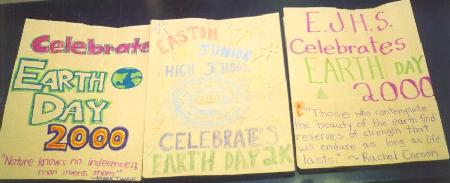 Celebrate
EARTH
DAY
2000
"Nature knows no indecencies;
man invents them."
~Mark Twain
EASTON
JUNIOR
HIGH SCHOOL
CELEBRATE'S
EARTH DAY 2K
E.J.H.S.
Celebrates
EARTH DAY
2000
"Those who contemplate
the beauty of the earth find
reserves of strength that
will endure as long as life
lasts." ~ Rachel Carson